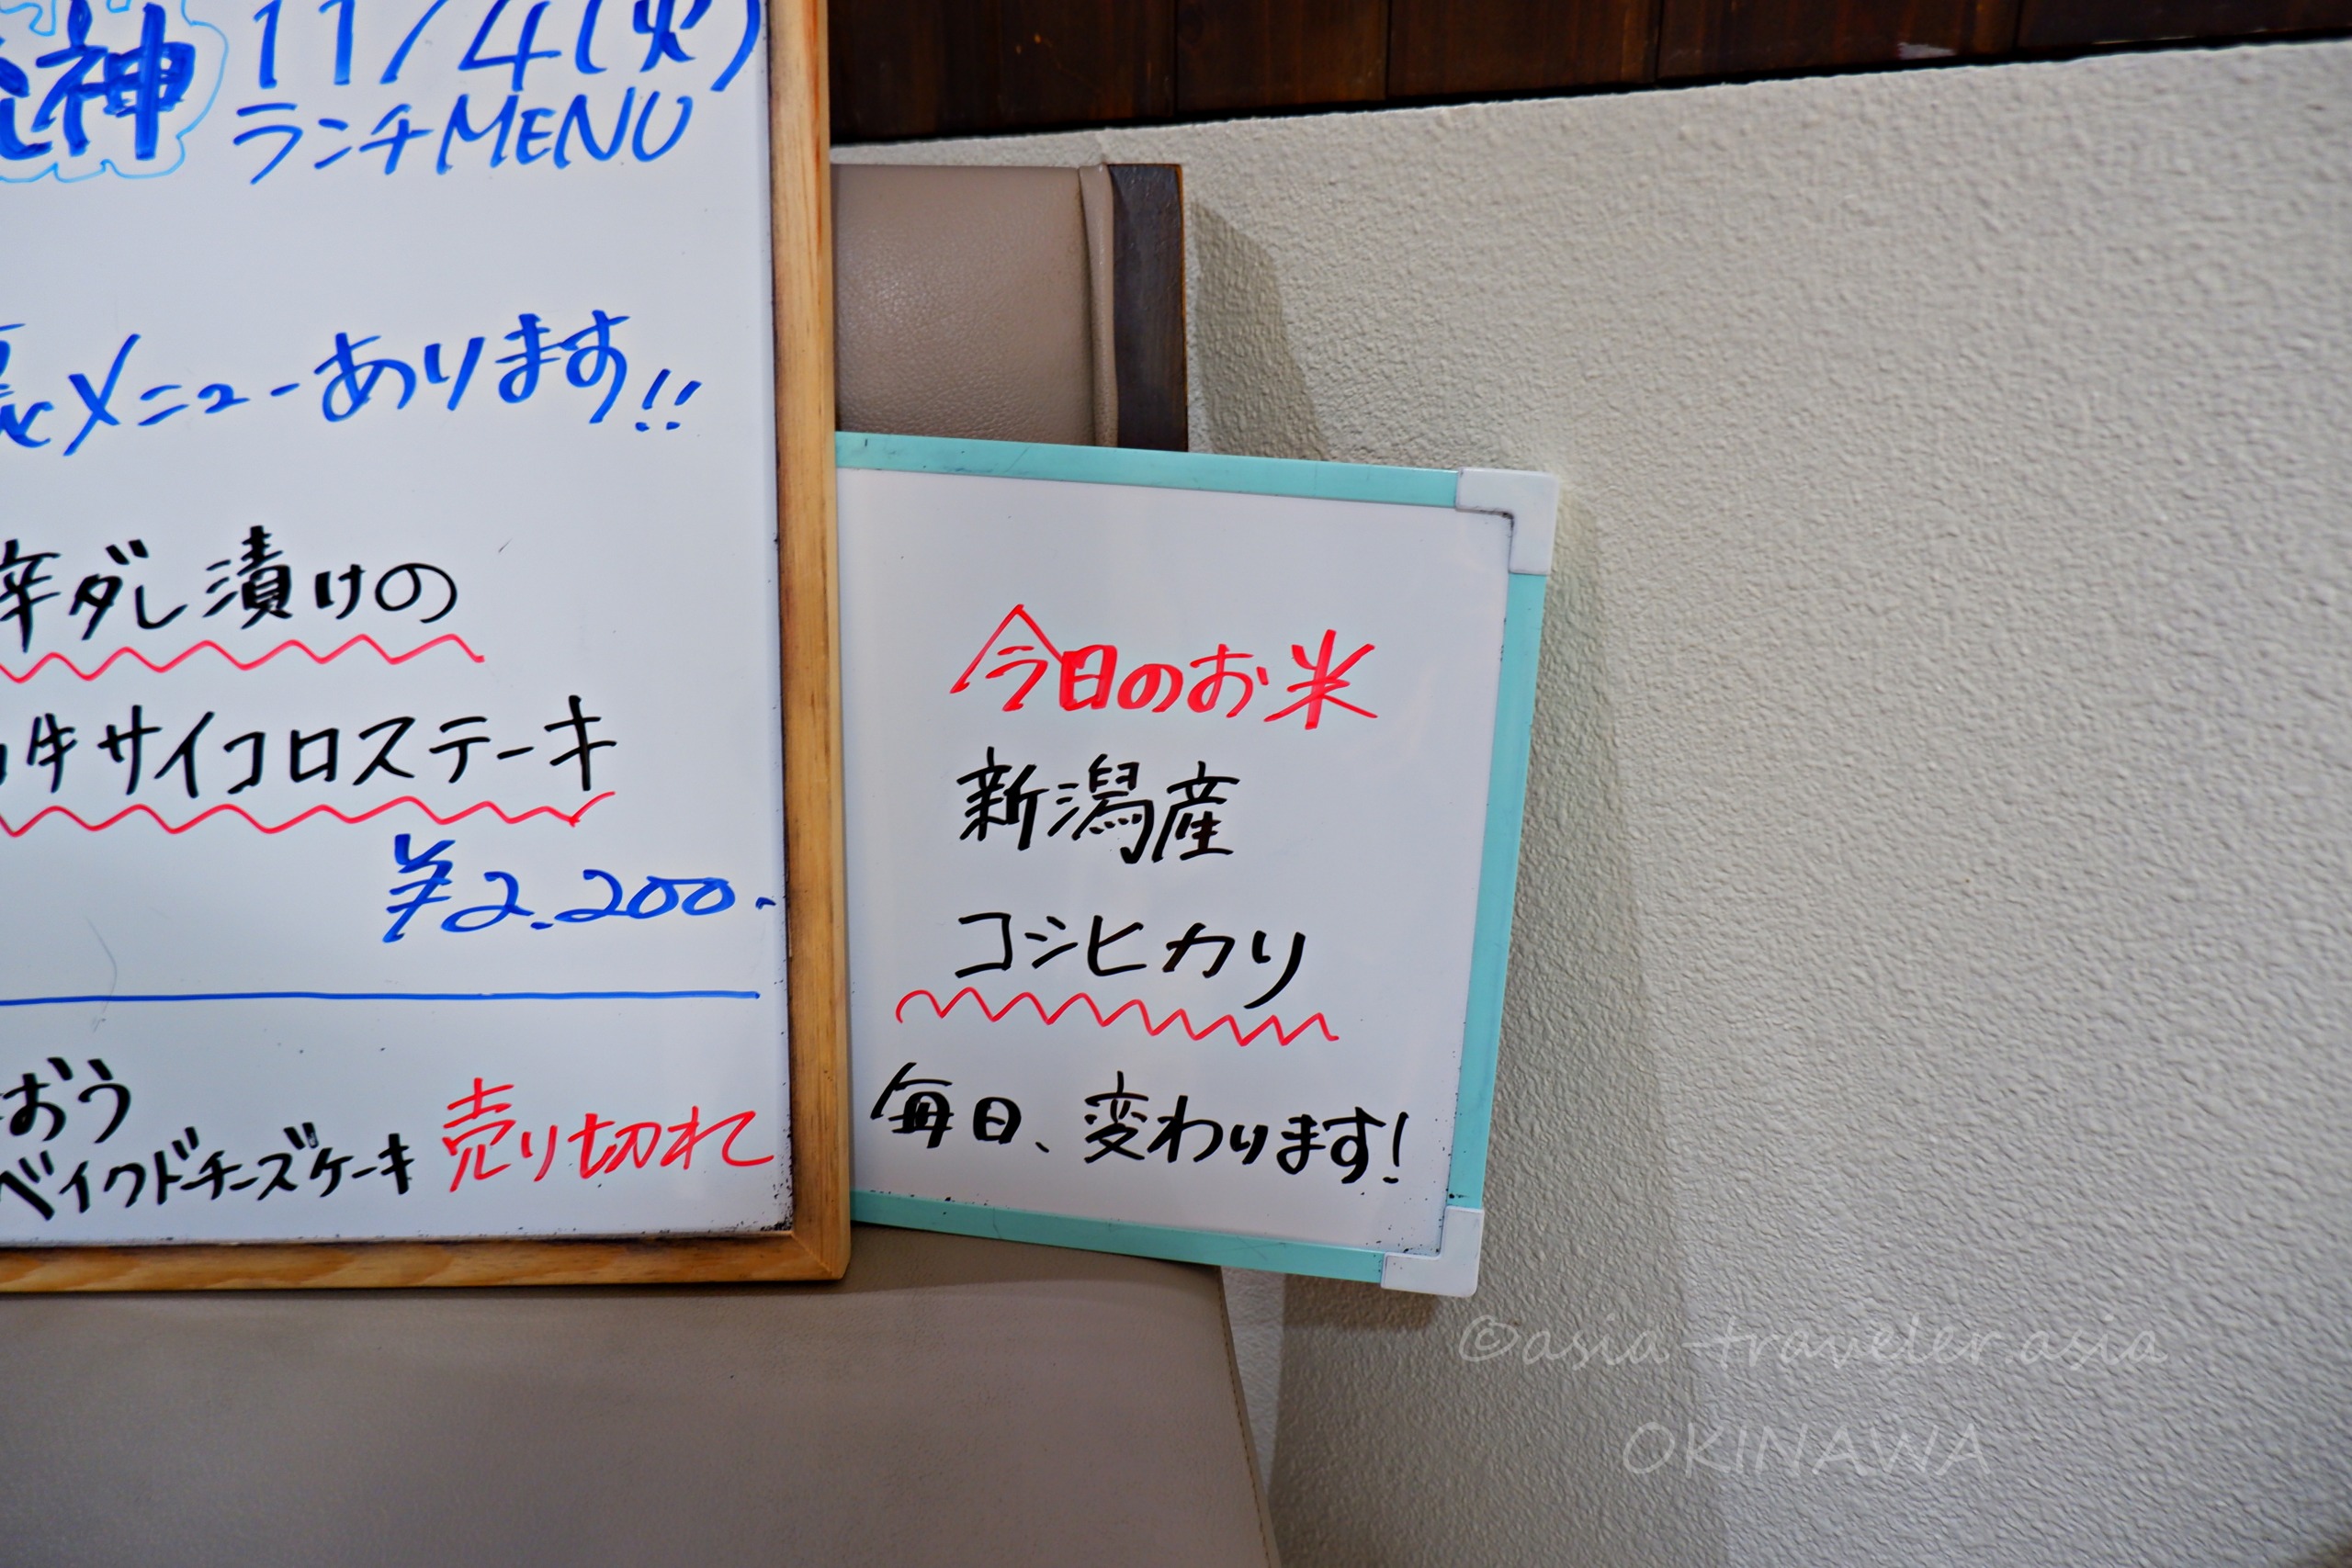 神 11/4(火)
ランチMENU
メニューあります!!
辛ダレ漬けの
牛サイコロステーキ
¥2.200.-
おう
ベイクドチーズケーキ 売り切れ
今日のお米
新潟産
コシヒカリ
毎日、変わります!
©asia-traveler.asia
OKINAWA